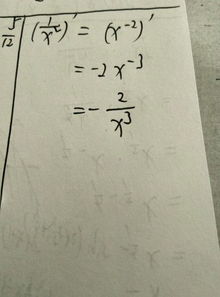 5/12 (1/x²)' = (x⁻²)'
= -2x⁻³
= - 2/x³